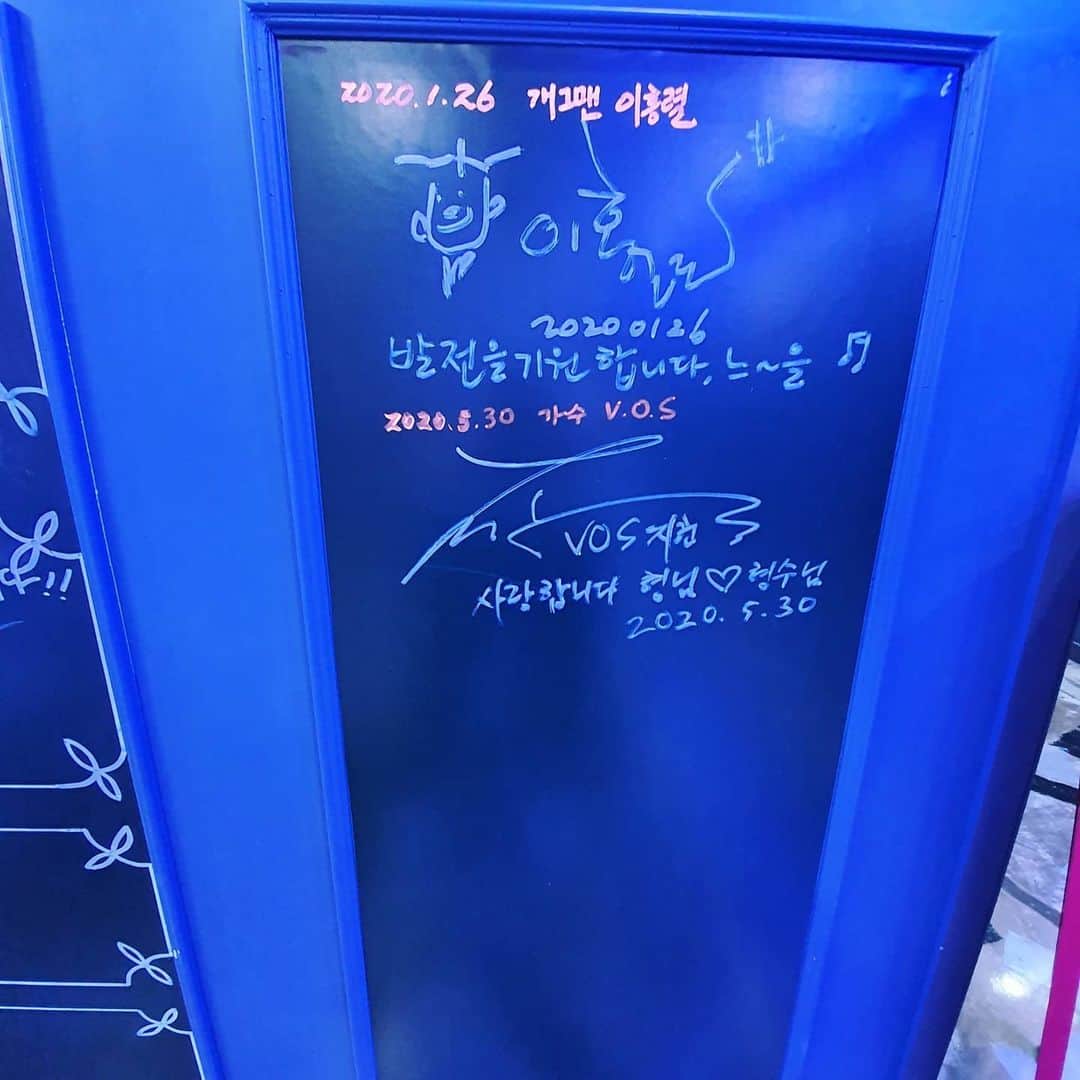 2020.1.26 개그맨 이홍렬
이홍렬
20200126
발전을 기원합니다, 느~을
2020.5.30 가수 V.O.S
VOS 지헌
사랑합니다 형님♡형수님
2020. 5. 30